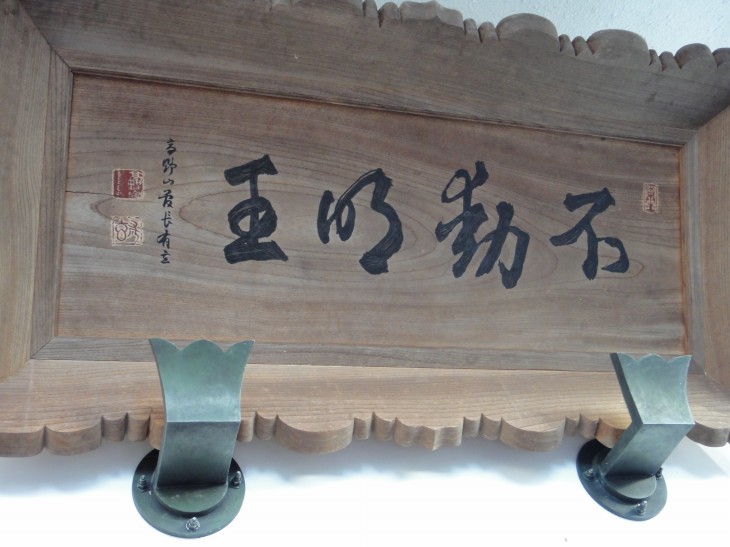 不動明王
高野山管長有玄